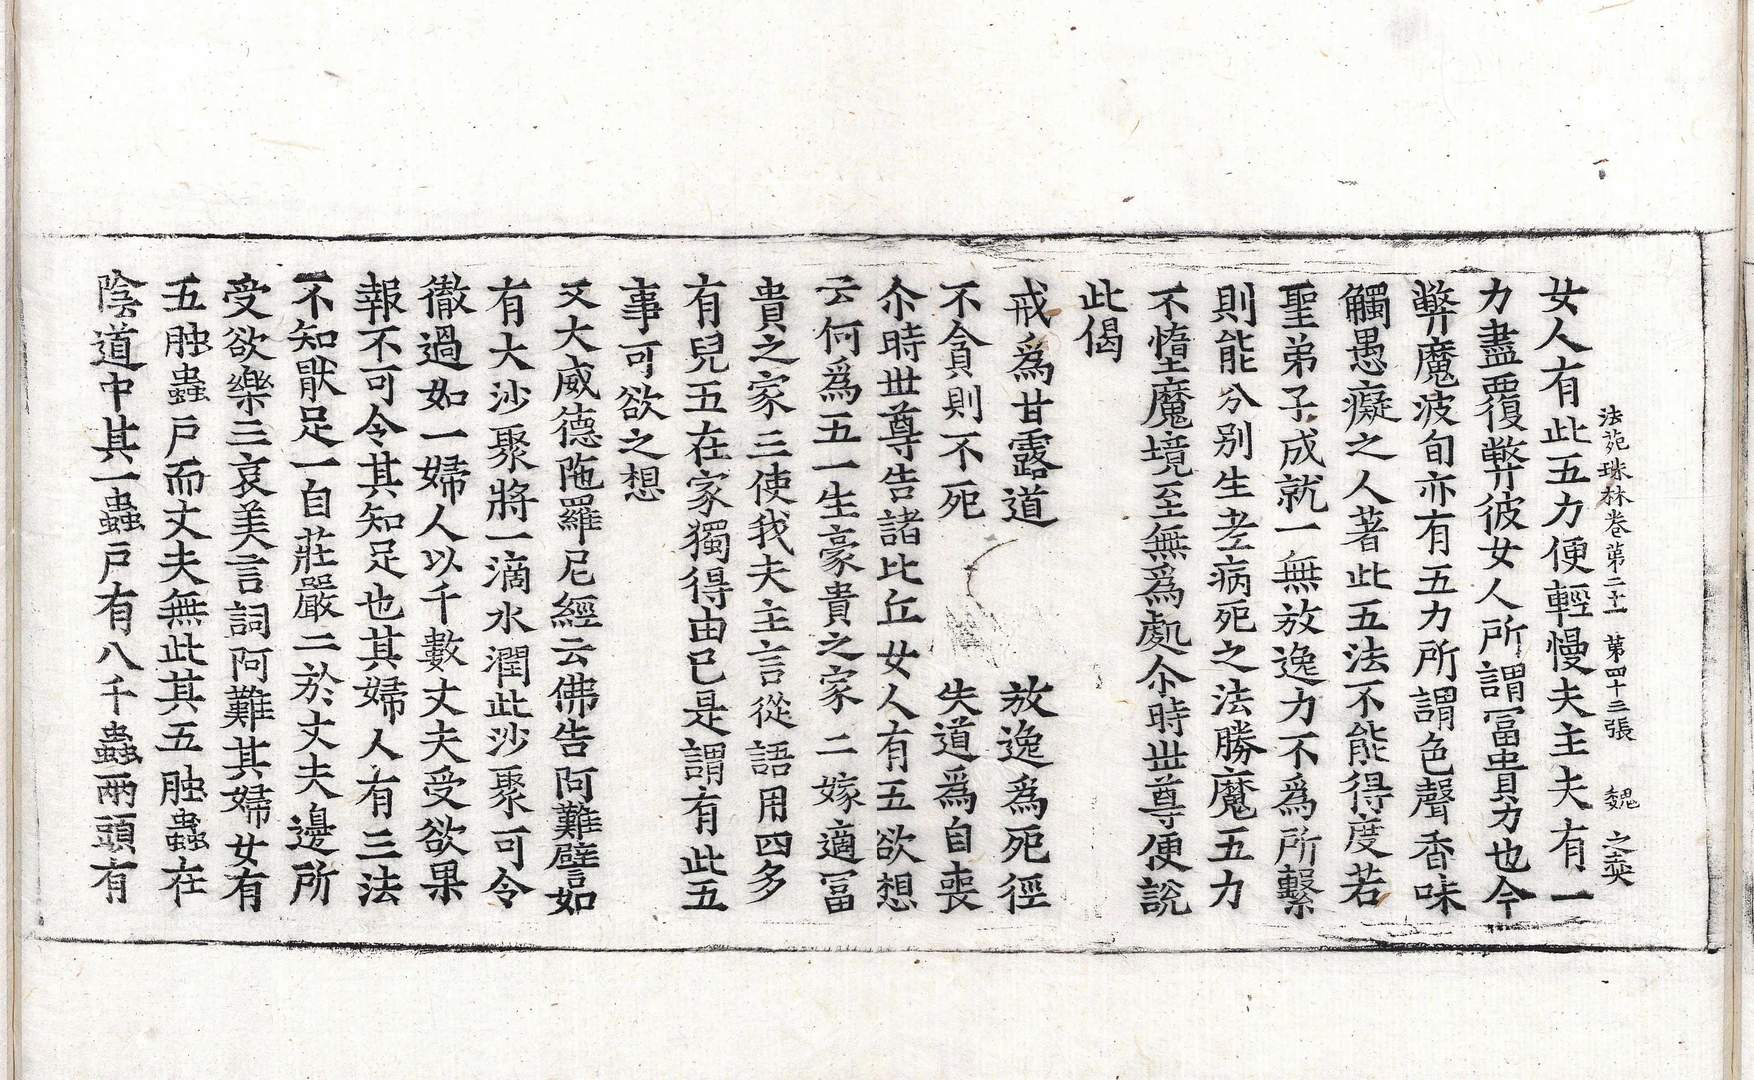 法苑珠林卷第二十一 第四十三張 魏 之奭
女人有此五力便輕慢夫主夫有一
力盡覆弊彼女人所謂冨貴力也今
弊魔波旬亦有五力所謂色聲香味
觸愚癡之人著此五法不能得度若
聖弟子成就一無放逸力不為所繫
則能分别生老病死之法勝魔五力
不墮魔境至無為處尒時世尊便說
此偈
戒為甘露道 放逸為死徑
不貪則不死 失道為自喪
尒時世尊告諸比丘女人有五欲想
云何為五一生豪貴之家二嫁適冨
貴之家三使我夫主言從語用四多
有兒五在家獨得由已是謂有此五
事可欲之想
又大威德陁羅尼經云佛告阿難譬如
有大沙聚將一滴水潤此沙聚可令
徹過如一婦人以千數丈夫受欲果
報不可令其知足也其婦人有三法
不知猒足一自莊嚴二於丈夫邊所
受欲樂三哀美言詞阿難其婦女有
五䖝蟲戶而丈夫無此其五䖝蟲在
陰道中其一蟲戶有八千蟲兩頭有